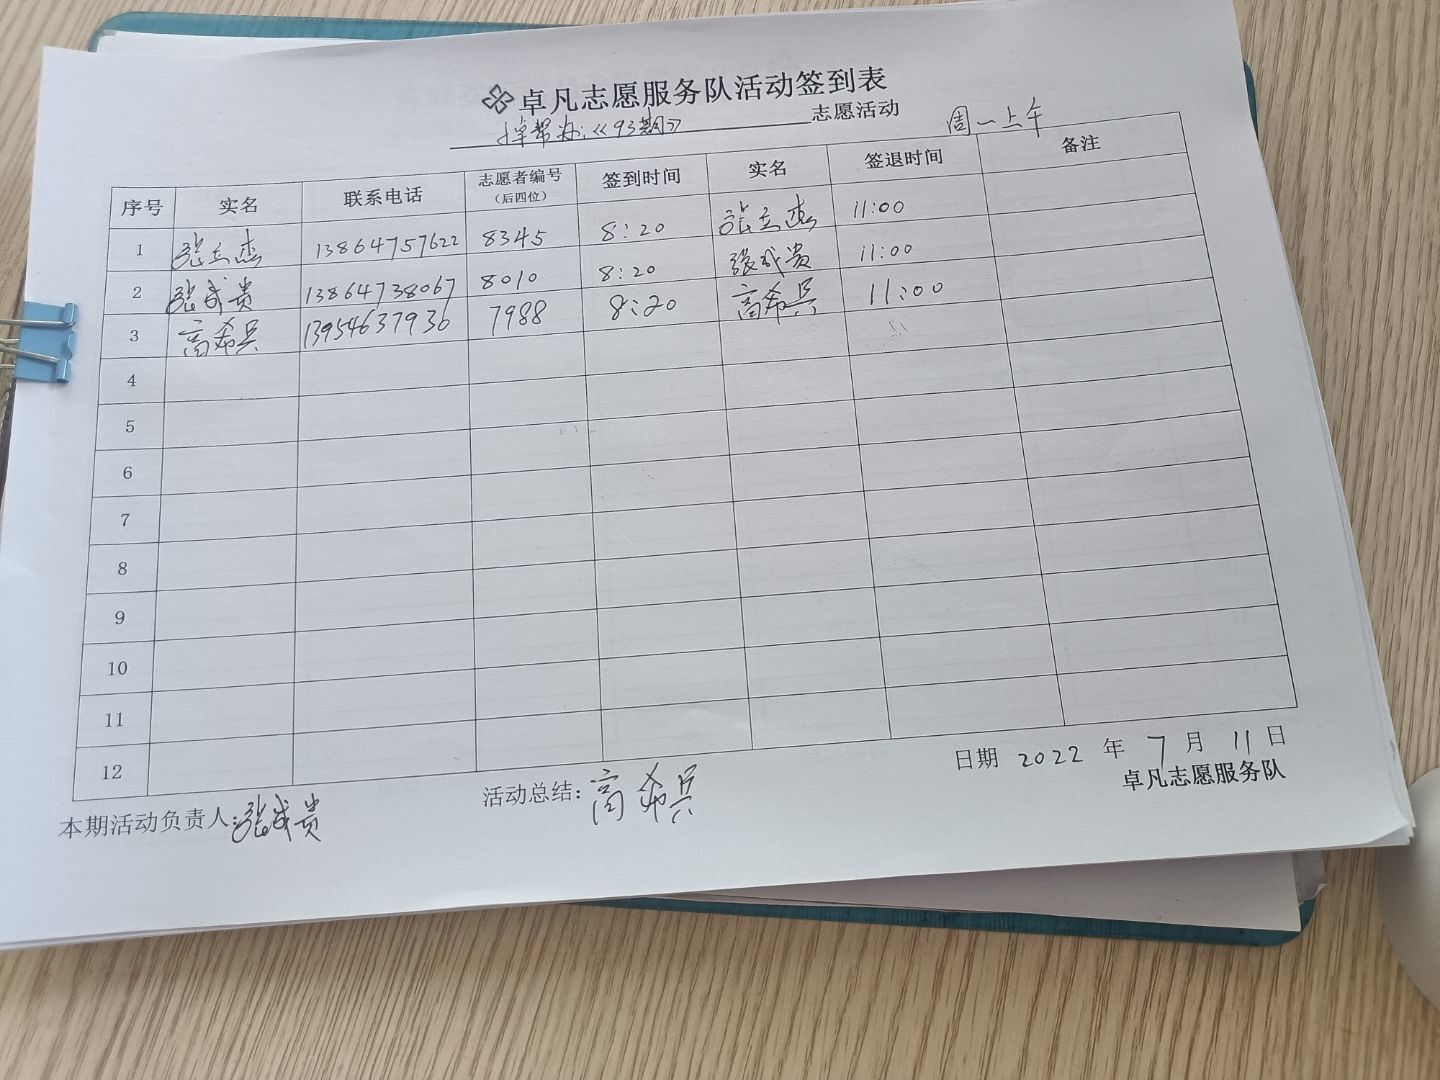 卓凡志愿服务队活动签到表
帮办:《93期》 志愿活动 周一上午
序号 实名 联系电话 志愿者编号(后四位) 签到时间 实名 签退时间 备注
1 张立杰 13864757622 8345 8:20 张立杰 11:00
2 张成贵 13864738067 8010 8:20 张成贵 11:00
3 高希兵 13954637936 7988 8:20 高希兵 11:00
4
5
6
7
8
9
10
11
12
日期 2022 年 7 月 11 日
本期活动负责人:张成贵 活动总结:高希兵 卓凡志愿服务队